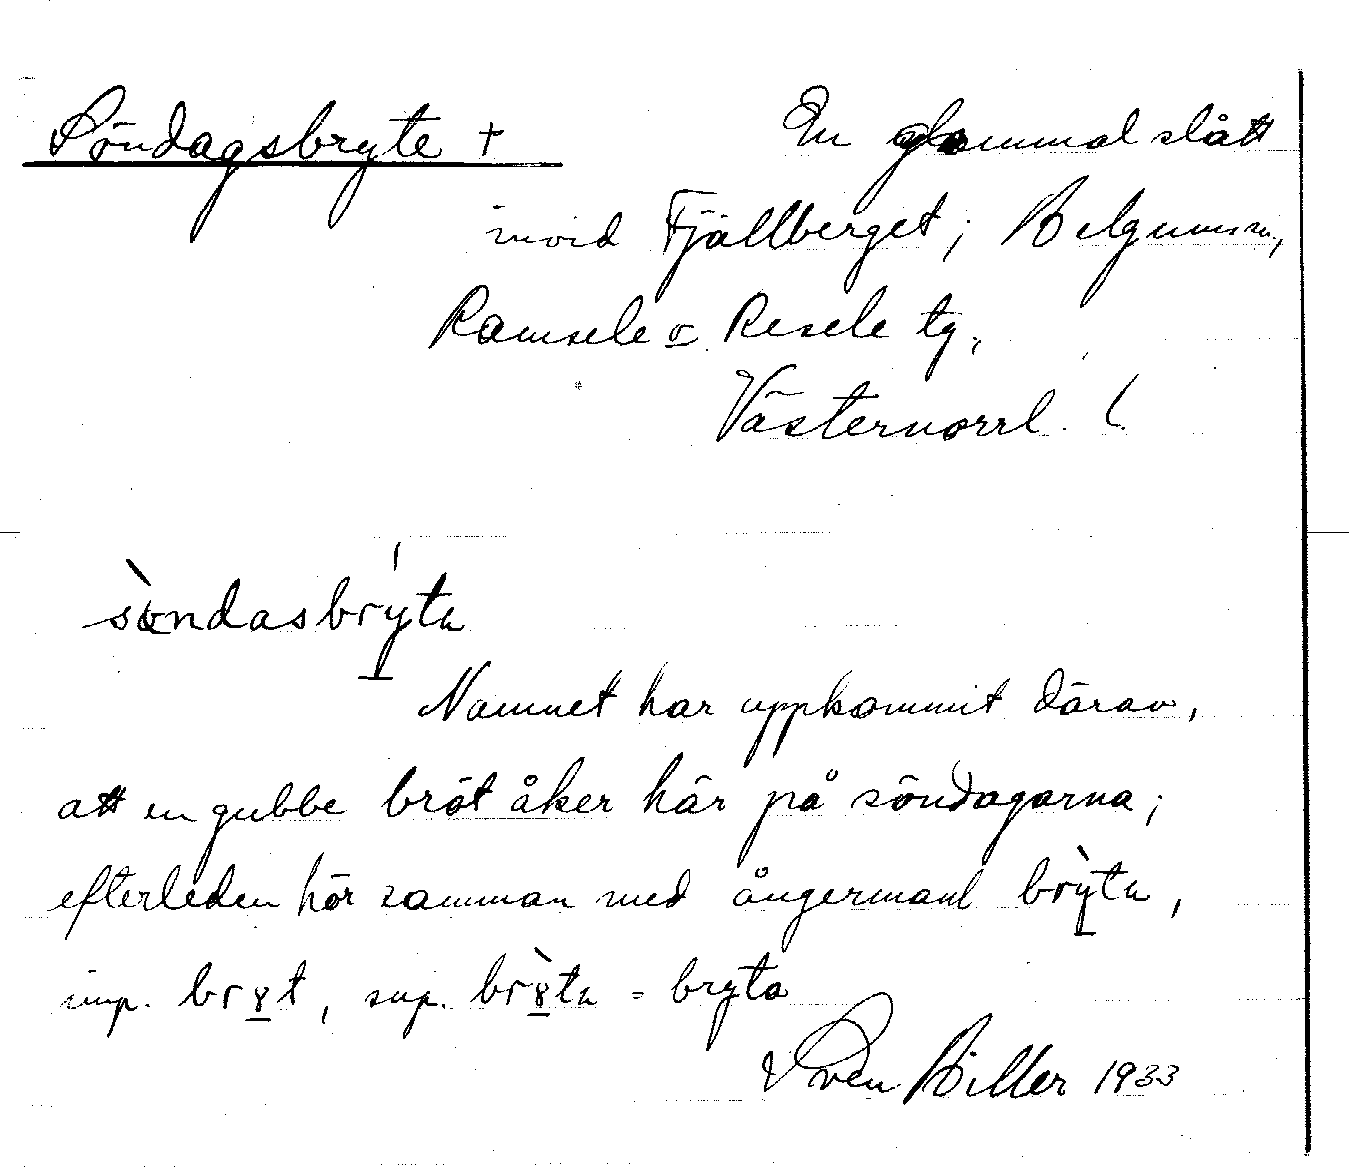 Söndagsbryte +
En gammal slått
invid Fjällberget, Helgumsn,
Ramsele o Resele tg,
Västernorrl. l.
sɷ̀ndasbrýta
Namnet har uppkommit därav,
att en gubbe bröt åker här på söndagarna;
efterleden hör samman med ångermanl brỳta,
imp. brɤt, sup. brɤ̀ta = bryta
Sven Biller 1933